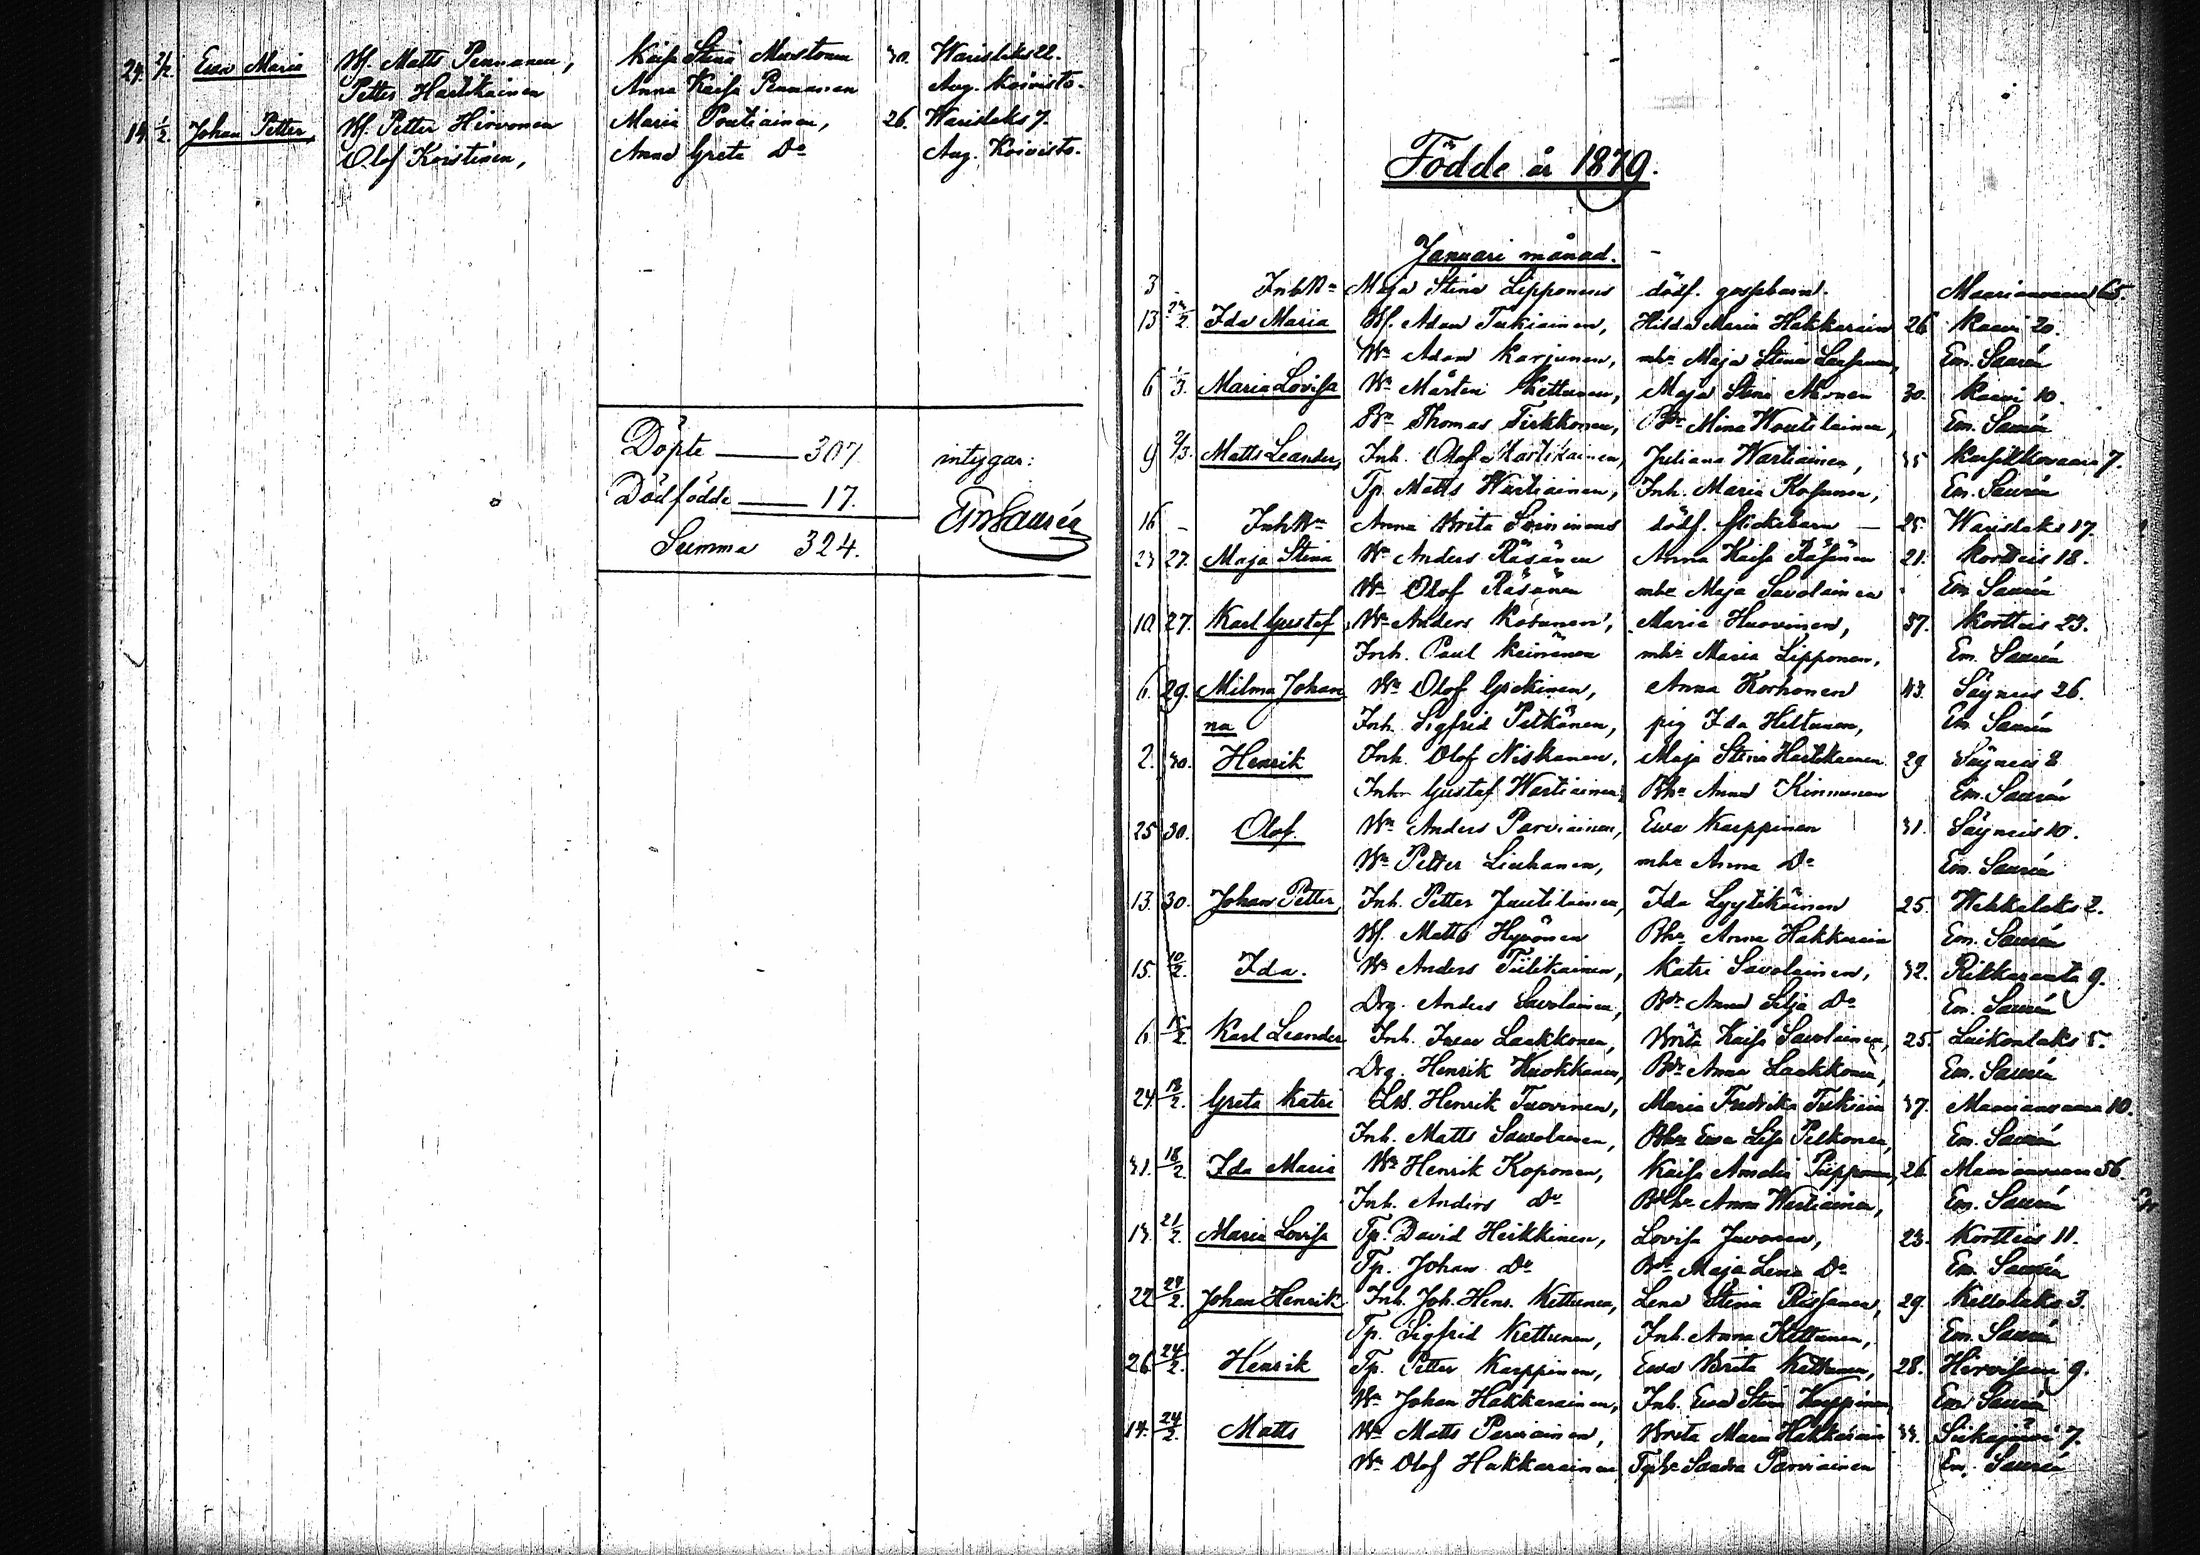 24. 2/2. Ewa Maria Bf. Matts Pennanen, Kaisa Stina Mustonen 30. Warislaks 22.
Petter Hartikainen Anna Kaisa Pennanen Aug. Koivisto.
14. 1/2. Johan Petter, Bf. Petter Hirvonen Maria Poutiainen, 26. Warislaks 7.
Olof Koistinen, Anna Greta Do Aug. Koivisto.
Döpte 307.
Dödfödde 17.
Summa 324.
intygar:
Em Saurén
Födde år 1879.
Januari månad.
3 - Inh. Maja Stina Lipponens dödf. gossbarn. Maarianvaara 65.
13 24/2. Ida Maria Bf. Adam Tukiainen, Hilda Maria Hakkarain 26 Kaavi 20.
Bn Adam Karjunen, mhr Maja Stina Em. Saurén
6 1/3. Maria Lovisa Bn Mårten Kettunen, Maja Stina 30. Kaavi 10.
Bn Thomas Tirkkonen, Bdr Mina Woutilainen, Em. Saurén
9 2/3. Matts Leander, Inh. Olof Hartikainen, Juliana Wartiainen, 35 7.
Tp. Matts Wartiainen, Inh. Maria Kosunen, Em. Saurén
16 - Inh. Anna Brita dödf. flickebarn - 25. Warislaks 17.
23 27. Maja Stina Bn Anders Räsänen Anna Kaisa Räsänen 21. Kortteis 18.
Bn Olof Räsänen mhr Maja Savolainen Em. Saurén
10. 27. Karl Gustaf, Bn Anders Kosunen, Maria Huovinen, 37. Kortteis 23.
Inh. Paul Keinänen mhr Maria Lipponen, Em. Saurén
6. 29. Milma Johan Bn Olof Anna Korhonen 43. Säyneis 26.
na Inh. Sigfrid Petkänen, pig Ida Hiltunen, Em. Saurén
2. 30. Henrik Inh. Olof Niskanen, Maja Stina Hartikainen 29 Säyneis 8
Inh. Gustaf Wartiainen, Bhr Anna Kinnunen Em. Saurén
25 30. Olof. Bn Anders Parviainen, Ewa Karppinen 31. Säyneis 10.
Bn Petter Liukanen, mhr Anna Do Em. Saurén
13. 30. Johan Petter, Inh. Petter Juutilainen, Ida Lyytikäinen 25. Wehkalaks 2.
Bf. Matts Hyvönen Bhr Anna Hakkarain Em. Saurén
15. 10/2. Ida. Bn Anders Tiilikainen, Katri Savolainen, 32. Rikkaranta 9.
Drg. Anders Savolainen, Bdr Anna Silja Do Em. Saurén
6. 15/2. Karl Leander Inh. Isac Laakkonen, Brita Kaisa Savolainen, 25. Luikonlaks 5.
Drg. Henrik Ruokkanen, Bdr Anna Laakkonen, Em. Saurén
24. 18/2. Greta Katri Henrik Tuovinen, Maria Fredrika Tukiain 37. Maarianvaara 10.
Inh. Matts Savolainen, Bhr Ewa Lisa Pelkonen, Em. Saurén
31. 18/2. Ida Maria Bn Henrik Koponen, Kaisa Amalia Piipponen, 26. Maarianvaara 56.
Inh. Anders Do Anna Wartiainen, Em. Saurén
13. 21/2. Maria Lovisa Tp. David Heikkinen, Lovisa Juvonen, 23. Kortteis 11.
Tp. Johan Do Bdr Maja Lena Do Em. Saurén
22 24/2. Johan Henrik Inh. Joh. Henr. Kettunen, Lena Stina Rissanen, 29. 3.
Tp. Sigfrid Kettunen, Inh. Anna Kettunen, Em. Saurén
26 24/2. Henrik Tp. Petter Karppinen, Ewa Brita Kettunen, 28. Hirvisaari 9.
Bn Johan Hakkarainen, Inh. Ewa Stina Karppinen Em. Saurén
14. 24/2. Matts Bn Matts Parviainen, Brita Maria Hakkarain 33. Siikajärvi 7.
Bn Olof Hakkarainen Sandra Parviainen Em. Saurén